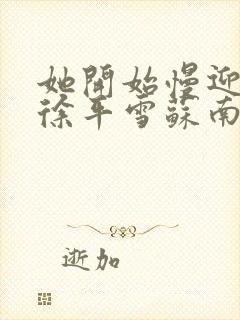 她開始慢迎
徐平雪蘇南
逝加